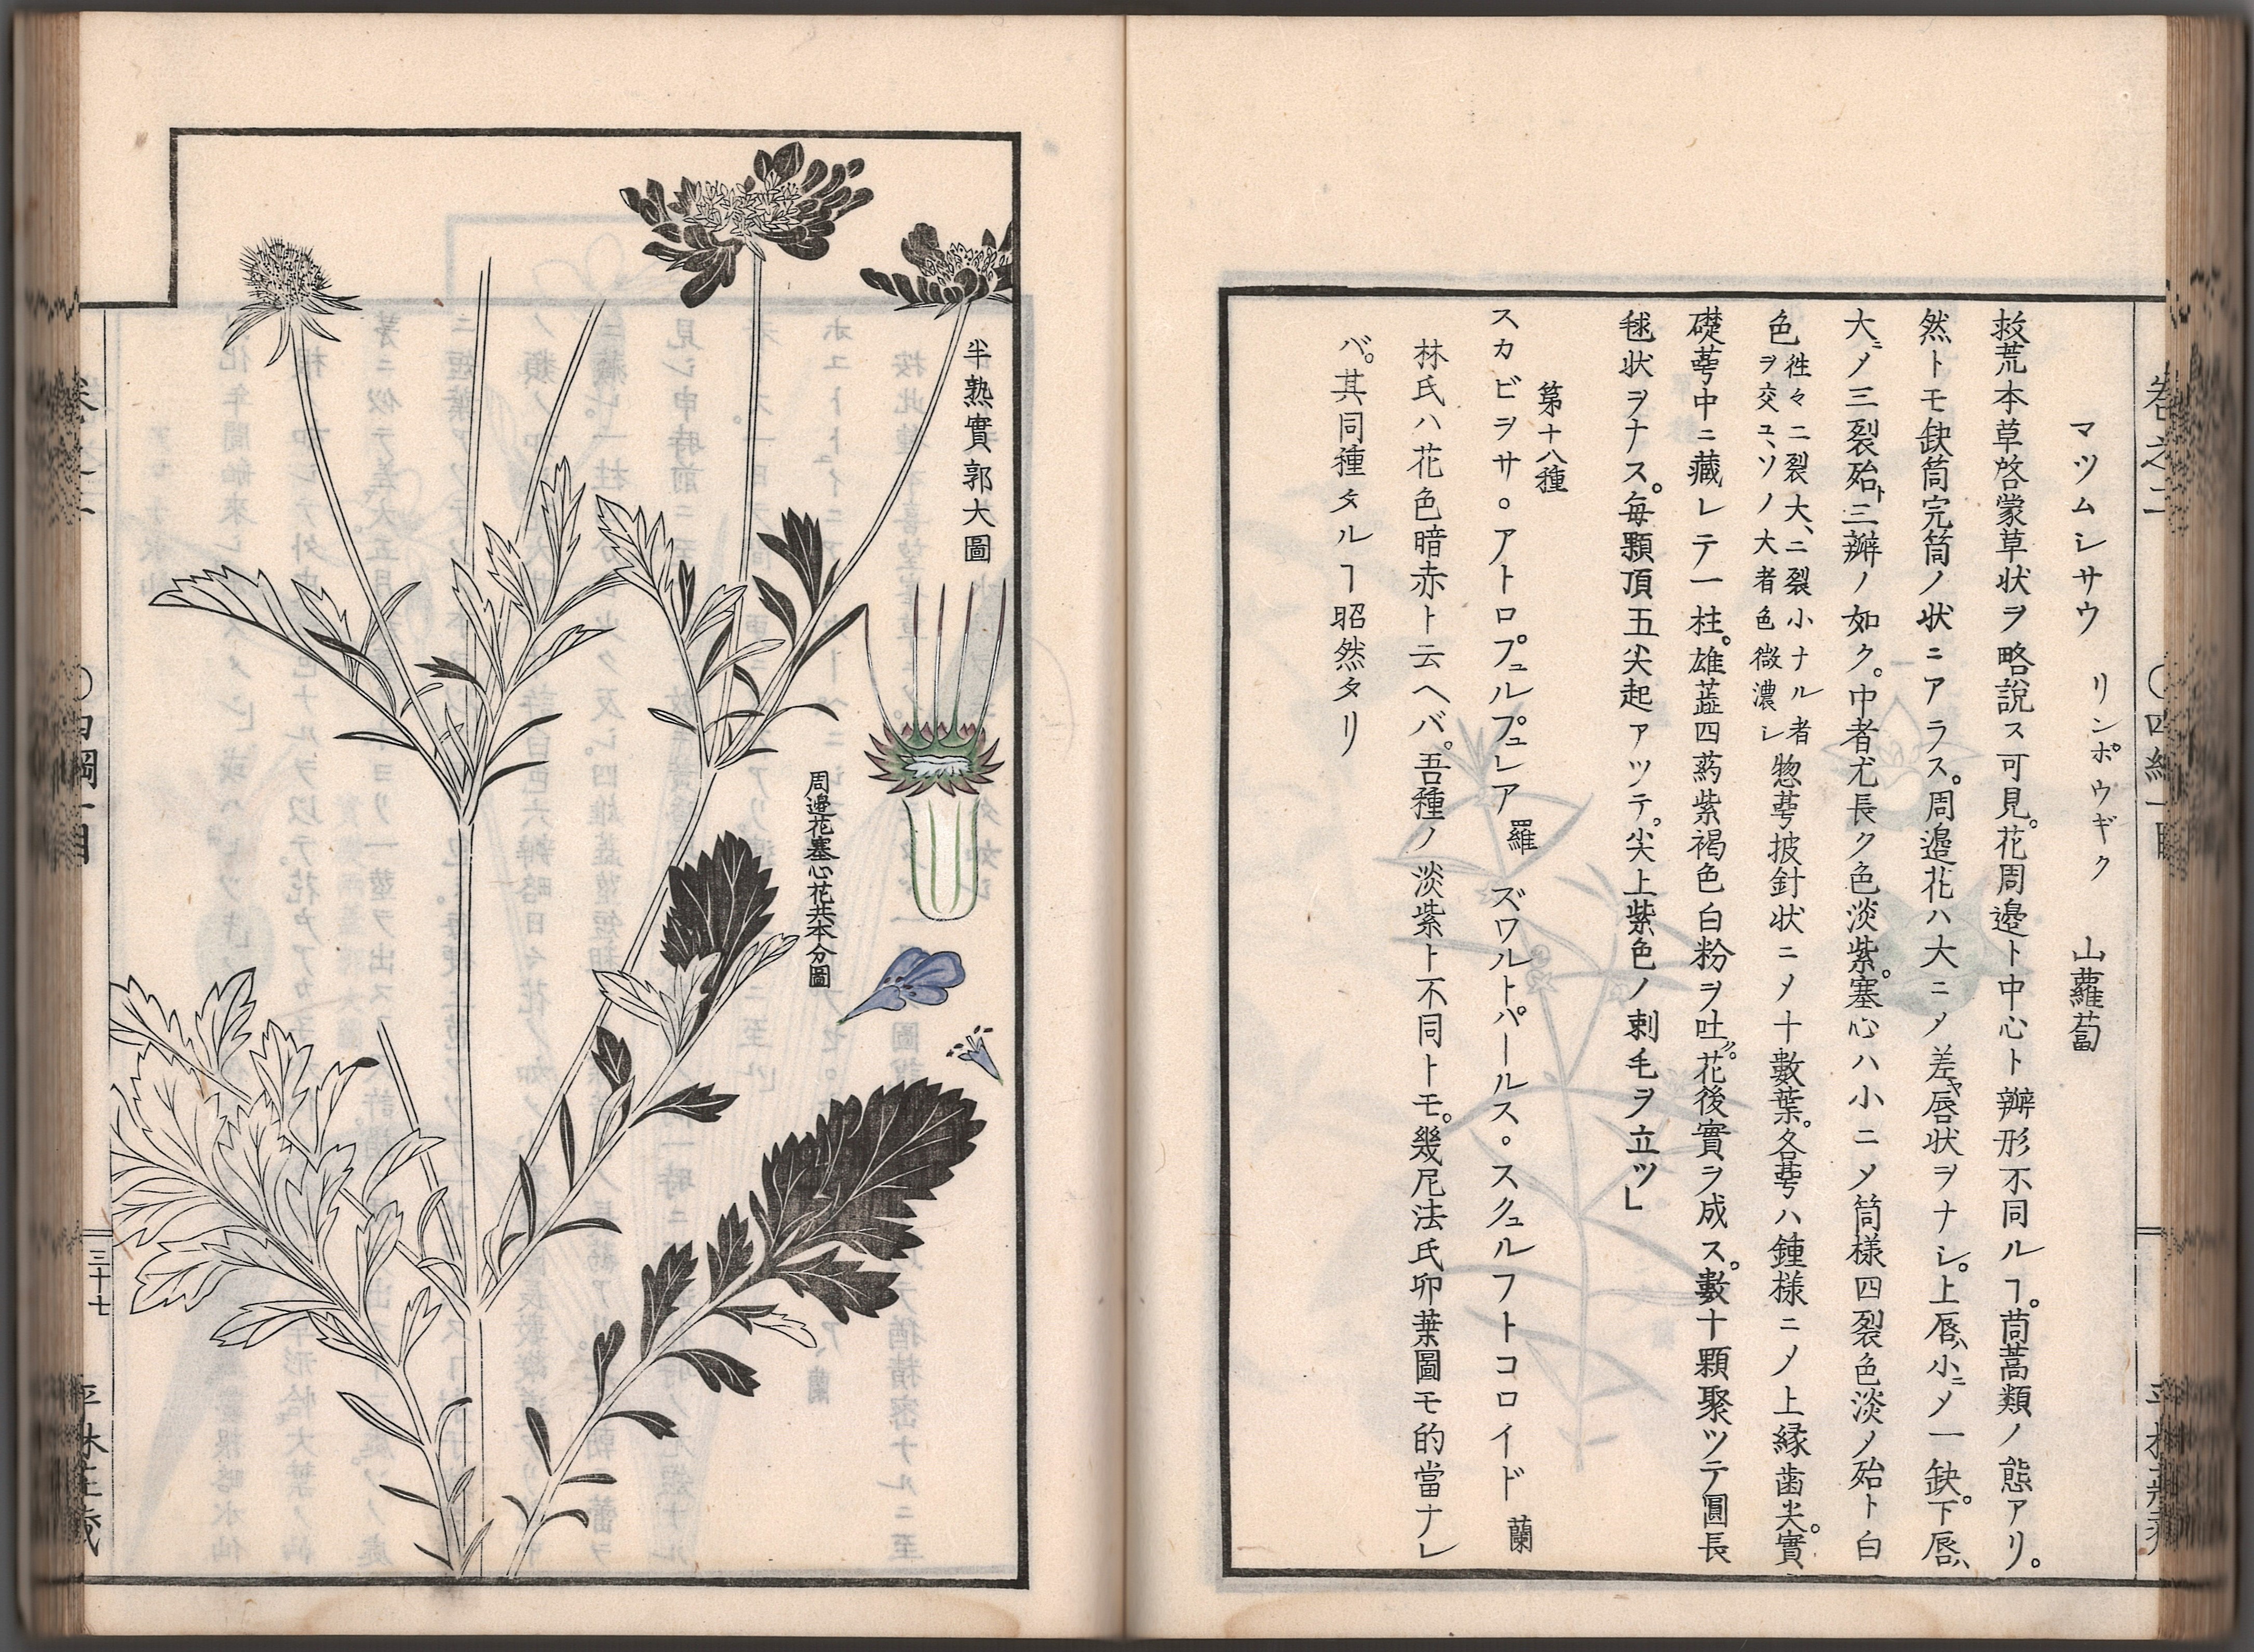 マツムシサウ　リンポウギク　山蘿蔔
救荒本草啓蒙草状ヲ略説ス可見。花周邉ト中心ト瓣形不同ルヿ。茼蒿類ノ態アリ。
然トモ缺筒完筒ノ状ニアラス。周邉花ハ大ニメ差ヤ唇状ヲナシ。上唇、小ニメ一缺。下唇、
大ニメ三裂殆ト三瓣ノ如ク。中者尤長ク色淡紫。塞心ハ小ニメ筒様四裂色淡メ殆ト白
色
徃々二裂大、二裂小ナル者
ヲ交ユ、ソノ大者色微濃シ
惣萼披針状ニメ十數葉。各萼ハ鍾様ニメ上縁歯尖。實
礎萼中ニ藏レテ一柱。雄蘂四葯紫褐色白粉ヲ吐ク。花後實ヲ成ス。數十顆聚ツテ圓長
毬状ヲナス。毎顆頂五尖起アツテ。尖上紫色ノ刺毛ヲ立ツ」
第十八種
スカビヲサ。アトロプュルプュレア 羅　ズワルトパールス。スクュルフトコロイド 蘭
林氏ハ花色暗赤ト云ヘバ。吾種ノ淡紫ト不同トモ。幾尼法氏卯葉圖モ的當ナレ
バ。其同種タルヿ昭然タリ
半熟實郭大圖
周邉花塞心花共本分圖
三十七